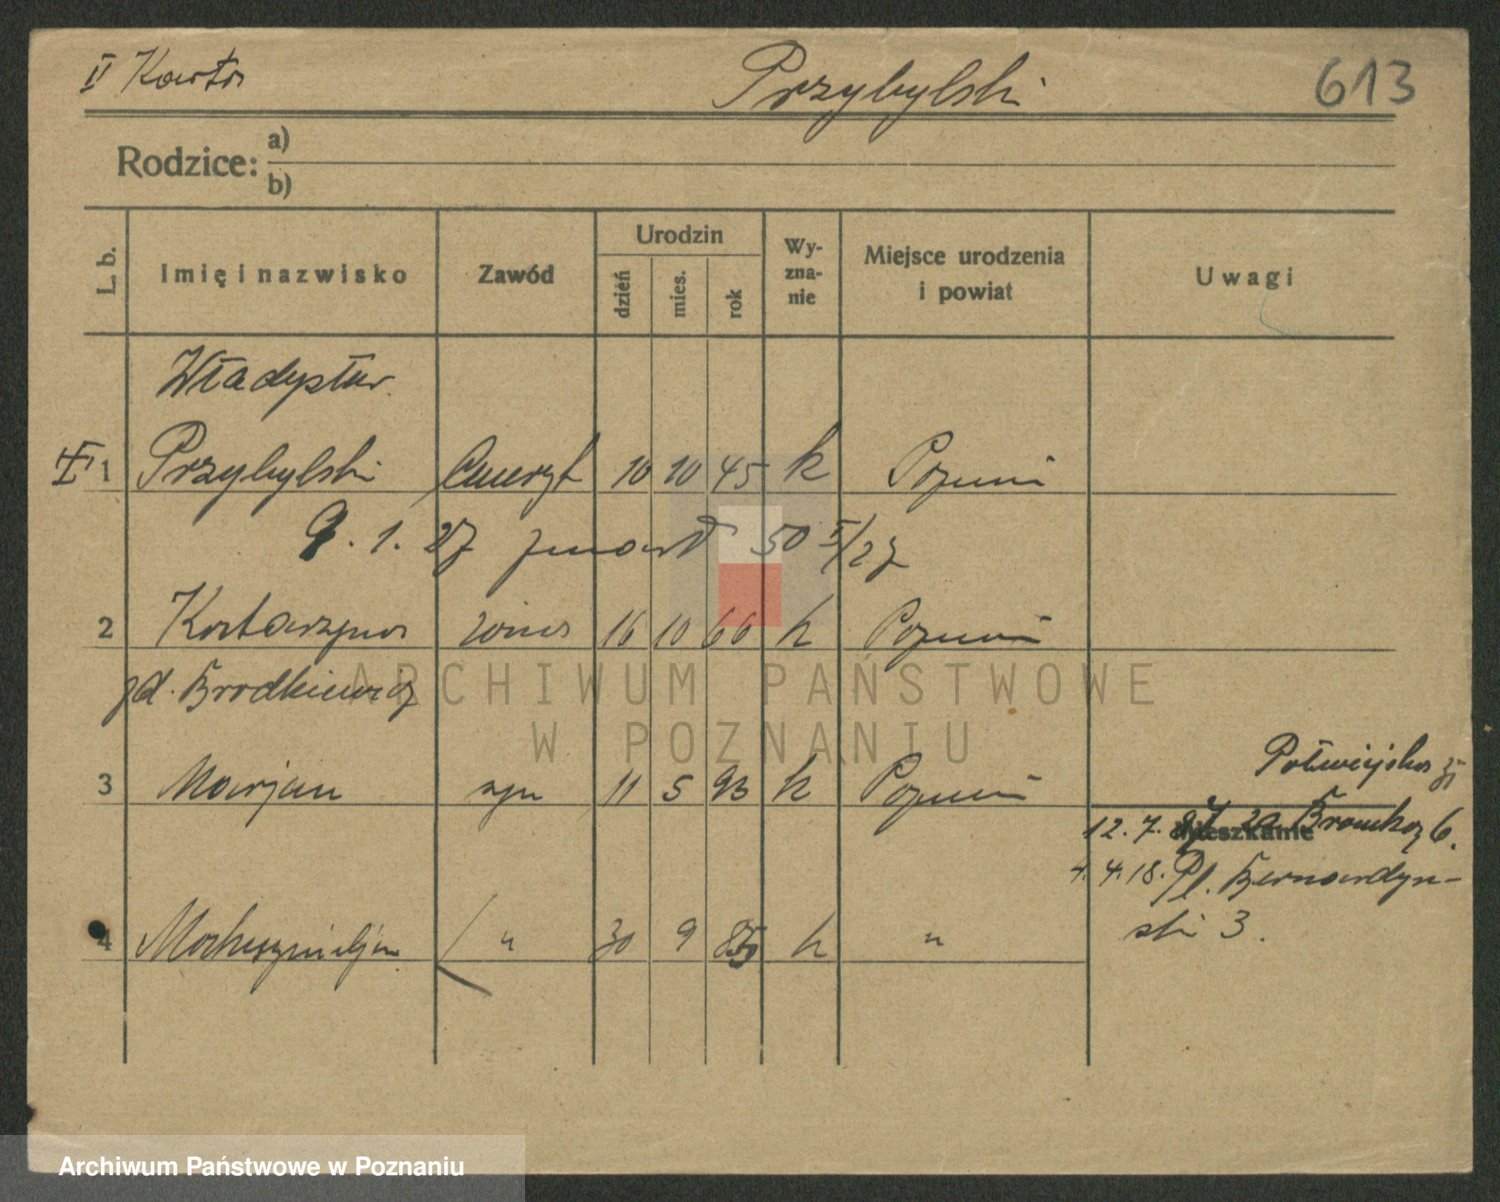 II Karta
Przybylski
613
Rodzice:
a)
b)
L. b.
Imię i nazwisko
Zawód
Urodzin
dzień
mies.
rok
Wy-
zna-
nie
Miejsce urodzenia
i powiat
Uwagi
Władysław
1 Przybylski Emeryt 10 10 45 k Poznań
9. 1. 27 zmarł 50 I/27
2 Katarzyna żona 16 10 66 k Poznań
zd. Brodkiewicz
3 Marjan syn 11 5 93 k Poznań
Półwiejska
Mieszkanie
12. 7. 6.
4. 4. 18. Pl. Bernardyń-
ski 3.
4 Maksymiljan " 30 9 k "
ARCHIWUM PAŃSTWOWE
W POZNANIU
Archiwum Państwowe w Poznaniu